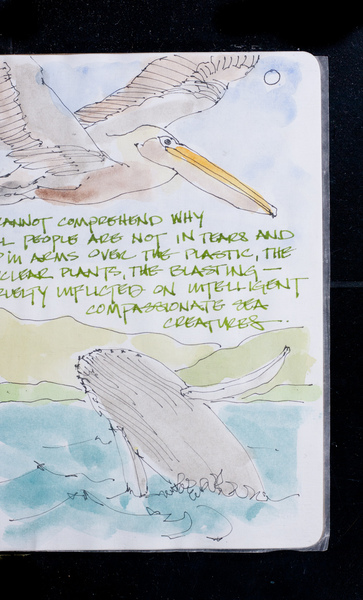 CANNOT COMPREHEND WHY
PEOPLE ARE NOT IN TEARS AND
IN ARMS OVER THE PLASTIC, THE
CLEAR PLANTS, THE BLASTING —
INFLICTED ON INTELLIGENT
COMPASSIONATE SEA
CREATURES —.